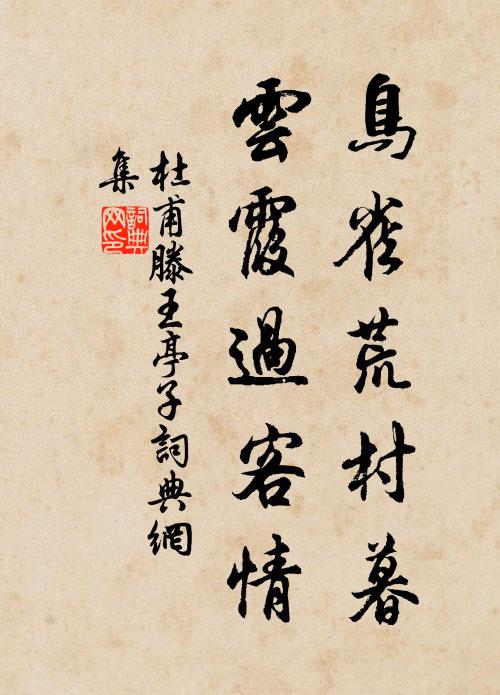 鳥雀荒村暮
雲霞過客情
杜甫滕王亭子詞典網
集
詞典
网印